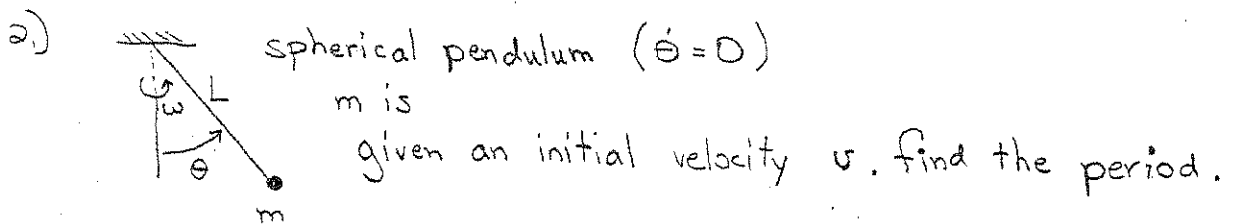 2.) spherical pendulum (θ̇ = 0)
m is
given an initial velocity v. find the period.
ω L
θ
m